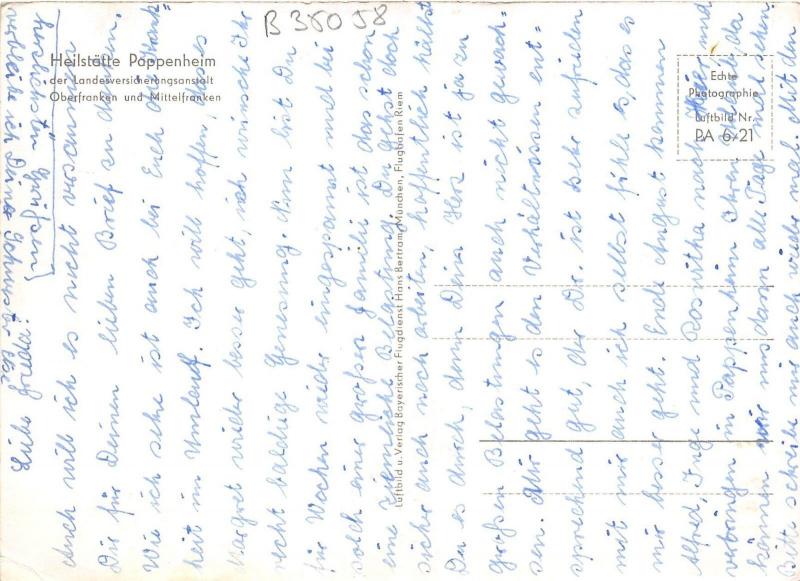 B 38058
Heilstätte Pappenheim
der Landesversicherungsanstalt
Oberfranken und Mittelfranken
Echte
Photographie
Luftbild Nr.
PA 6/21
Luftbild u. Verlag Bayerischer Flugdienst Hans Bertram, München, Flughafen Riem
Liebe Frieda!
Auch will ich es nicht versäumen
Dir für Deinen lieben Brief zu danken.
Wie ich sehe ist auch bei Euch die Krank-
heit im Umlauf. Ich will hoffen, daß es
Margret wieder besser geht, ich wünsche ihr
recht baldige Genesung. Nun bist Du
für Wochen wieder eingespannt und bei
solch einer großen Familie ist das schon
eine ziemliche Belastung. Du gehst doch
sicher auch noch arbeiten, hoffentlich hältst
Du es durch, denn Dein Herz ist ja zu
großen Belastungen auch nicht gewach-
sen. Mir geht es den Verhältnissen ent-
sprechend gut, der Dr. ist sehr zufrieden
mit mir auch ich selbst fühle es daß es
mir besser geht. Ende August kommen
Alfred, Inge und Roswitha nach hier und
verbringen in Pappenheim ihren Urlaub da
können wir uns dann alle Tage mal sehen.
Bitte schreibe mir auch wieder mal. Mit den
herzlichsten Grüßen
verbleibe ich Deine Schwester